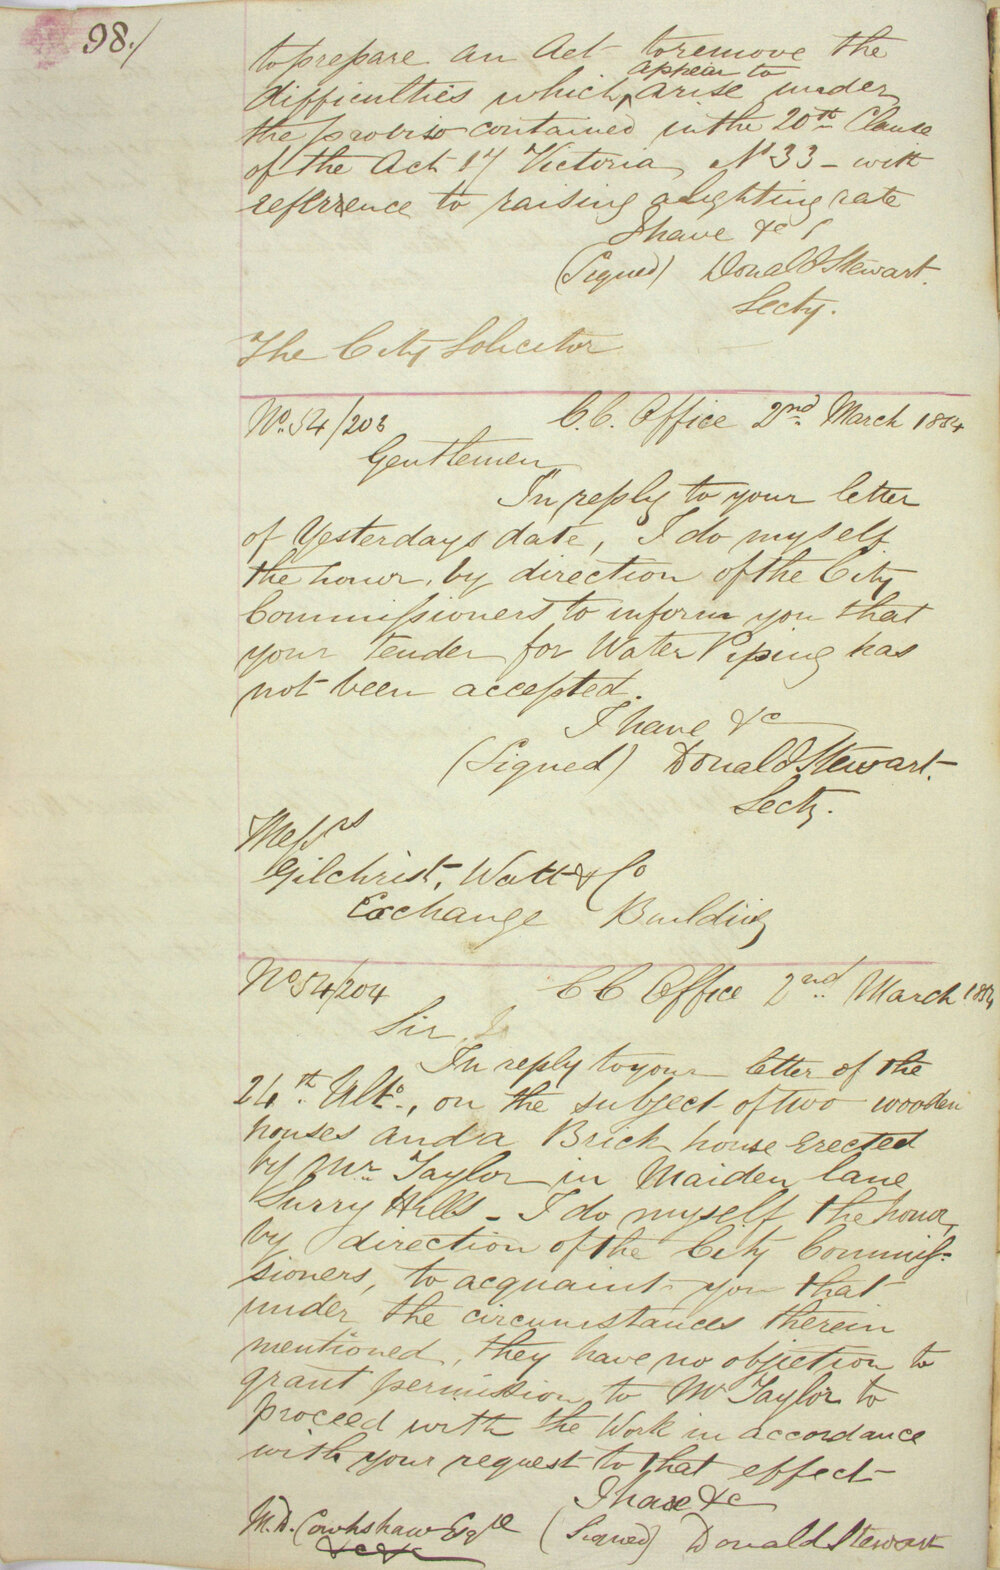 98./
to prepare an Act to remove the
appear to
difficulties which ^ arise under
the proviso contained in the 20th Clause
of the Act 17 Victoria, No 33 - with
reference to raising a lighting rate
I have &c
(Signed) Donald Stewart.
Secty.
The City Solicitor
No. 54/203 C.C. Office 2nd March 1854
Gentlemen
In reply to your letter
of Yesterdays date, I do myself
the honor, by direction of the City
Commissioners to inform you that
your Tender for Water Piping has
not been accepted.
I have &c
(Signed) Donald Stewart.
Secty.
Messrs
Gilchrist, Watt & Co
Exchange Building
No 54/204 C C Office 2nd March 1854
Sir
In reply to your letter of the
24th Ulto., on the subject of two wooden
houses and a Brick house Erected
by Mr Taylor in Maiden lane
Surry Hills - I do myself the honor,
by direction of the City Commis-
sioners, to acquaint you that
under the circumstances therein
mentioned, they have no objection to
grant permission to Mr Taylor to
proceed with the Work in accordance
with your request to that effect
I have &c
M.D. Cowhshaw Esqre (Signed) Donald Stewart
&c &c